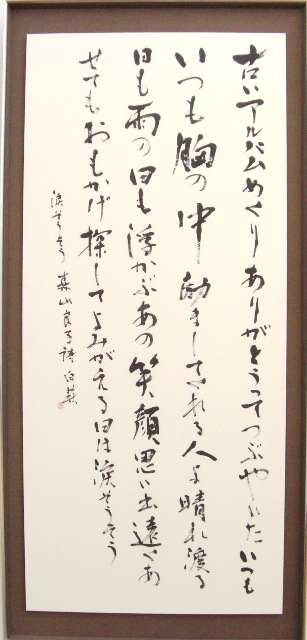 古いアルバムめくりありがとうってつぶやいたいつも
いつも胸の中励ましてくれる人よ晴れ渡る
日も雨の日も浮かぶあの笑顔思い出遠くあ
せてもおもかげ探してよみがえる日は涙そうそう
涙そうそう 森山良子詩